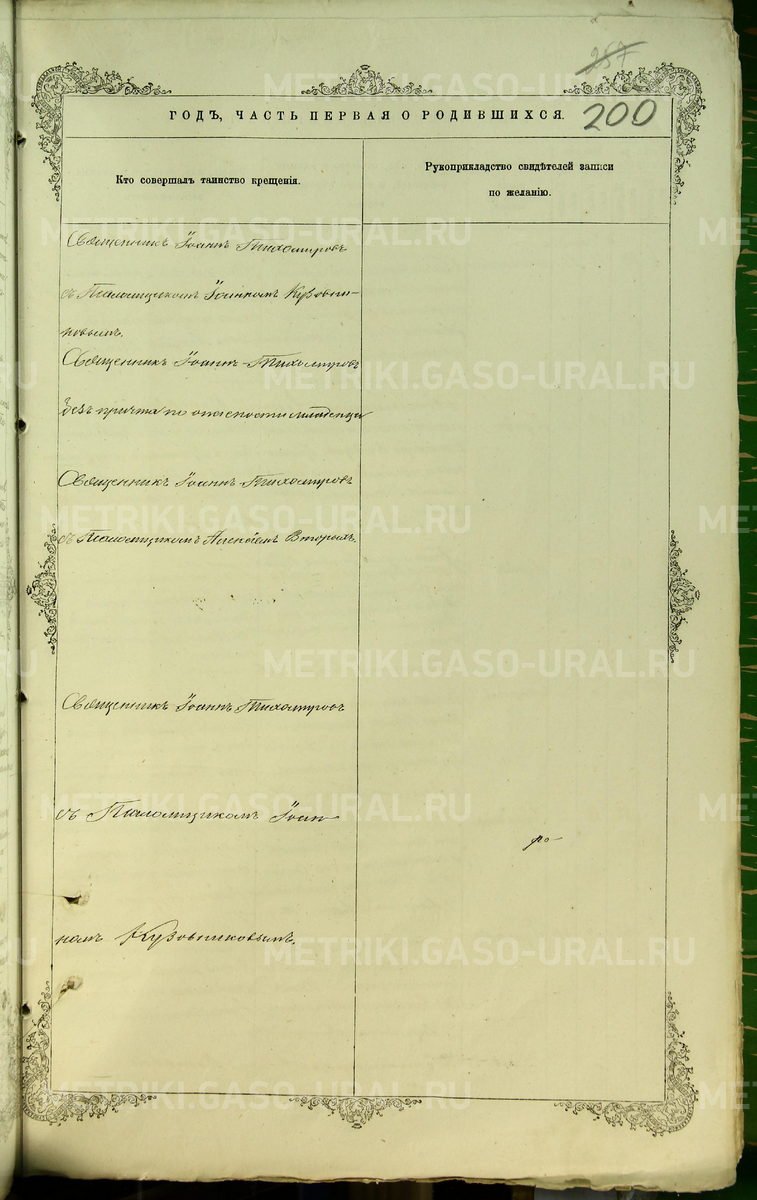 257
200
ГОДЪ, ЧАСТЬ ПЕРВАЯ О РОДИВШИХСЯ.
Кто совершалъ таинство крещенія.
Рукоприкладство свидѣтелей записи
по желанію.
Священникъ Іоаннъ Тихомировъ
съ Псаломщикомъ Іоанномъ Кузовни-
ковымъ.
Священникъ Іоаннъ Тихомировъ
безъ причта по опасности младенца
Священникъ Іоаннъ Тихомировъ
съ Псаломщикомъ Вторыхъ.
Священникъ Іоаннъ Тихомировъ
съ Псаломщикомъ Іоан-
номъ Кузовниковымъ.
METRIKI.GASO-URAL.RU